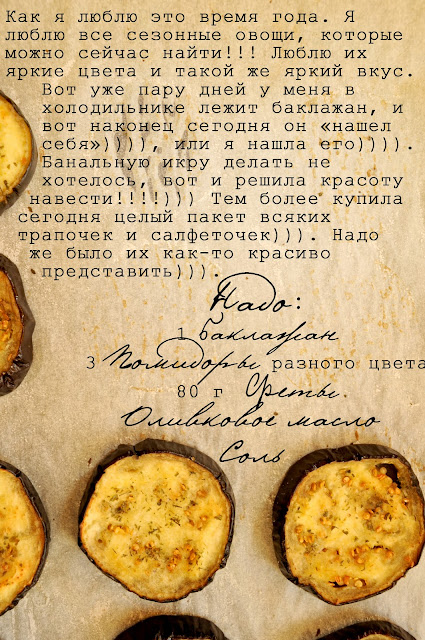 Как я люблю это время года. Я
люблю все сезонные овощи, которые
можно сейчас найти!!! Люблю их
яркие цвета и такой же яркий вкус.
Вот уже пару дней у меня в
холодильнике лежит баклажан, и
вот наконец сегодня он «нашел
себя»)))), или я нашла его)))).
Банальную икру делать не
хотелось, вот и решила красоту
навести!!!!))) Тем более купила
сегодня целый пакет всяких
трапочек и салфеточек))). Надо
же было их как-то красиво
представить))).
Надо:
1 Баклажан
3 Помидоры разного цвета
80 г Фреты
Оливковое масло
Соль